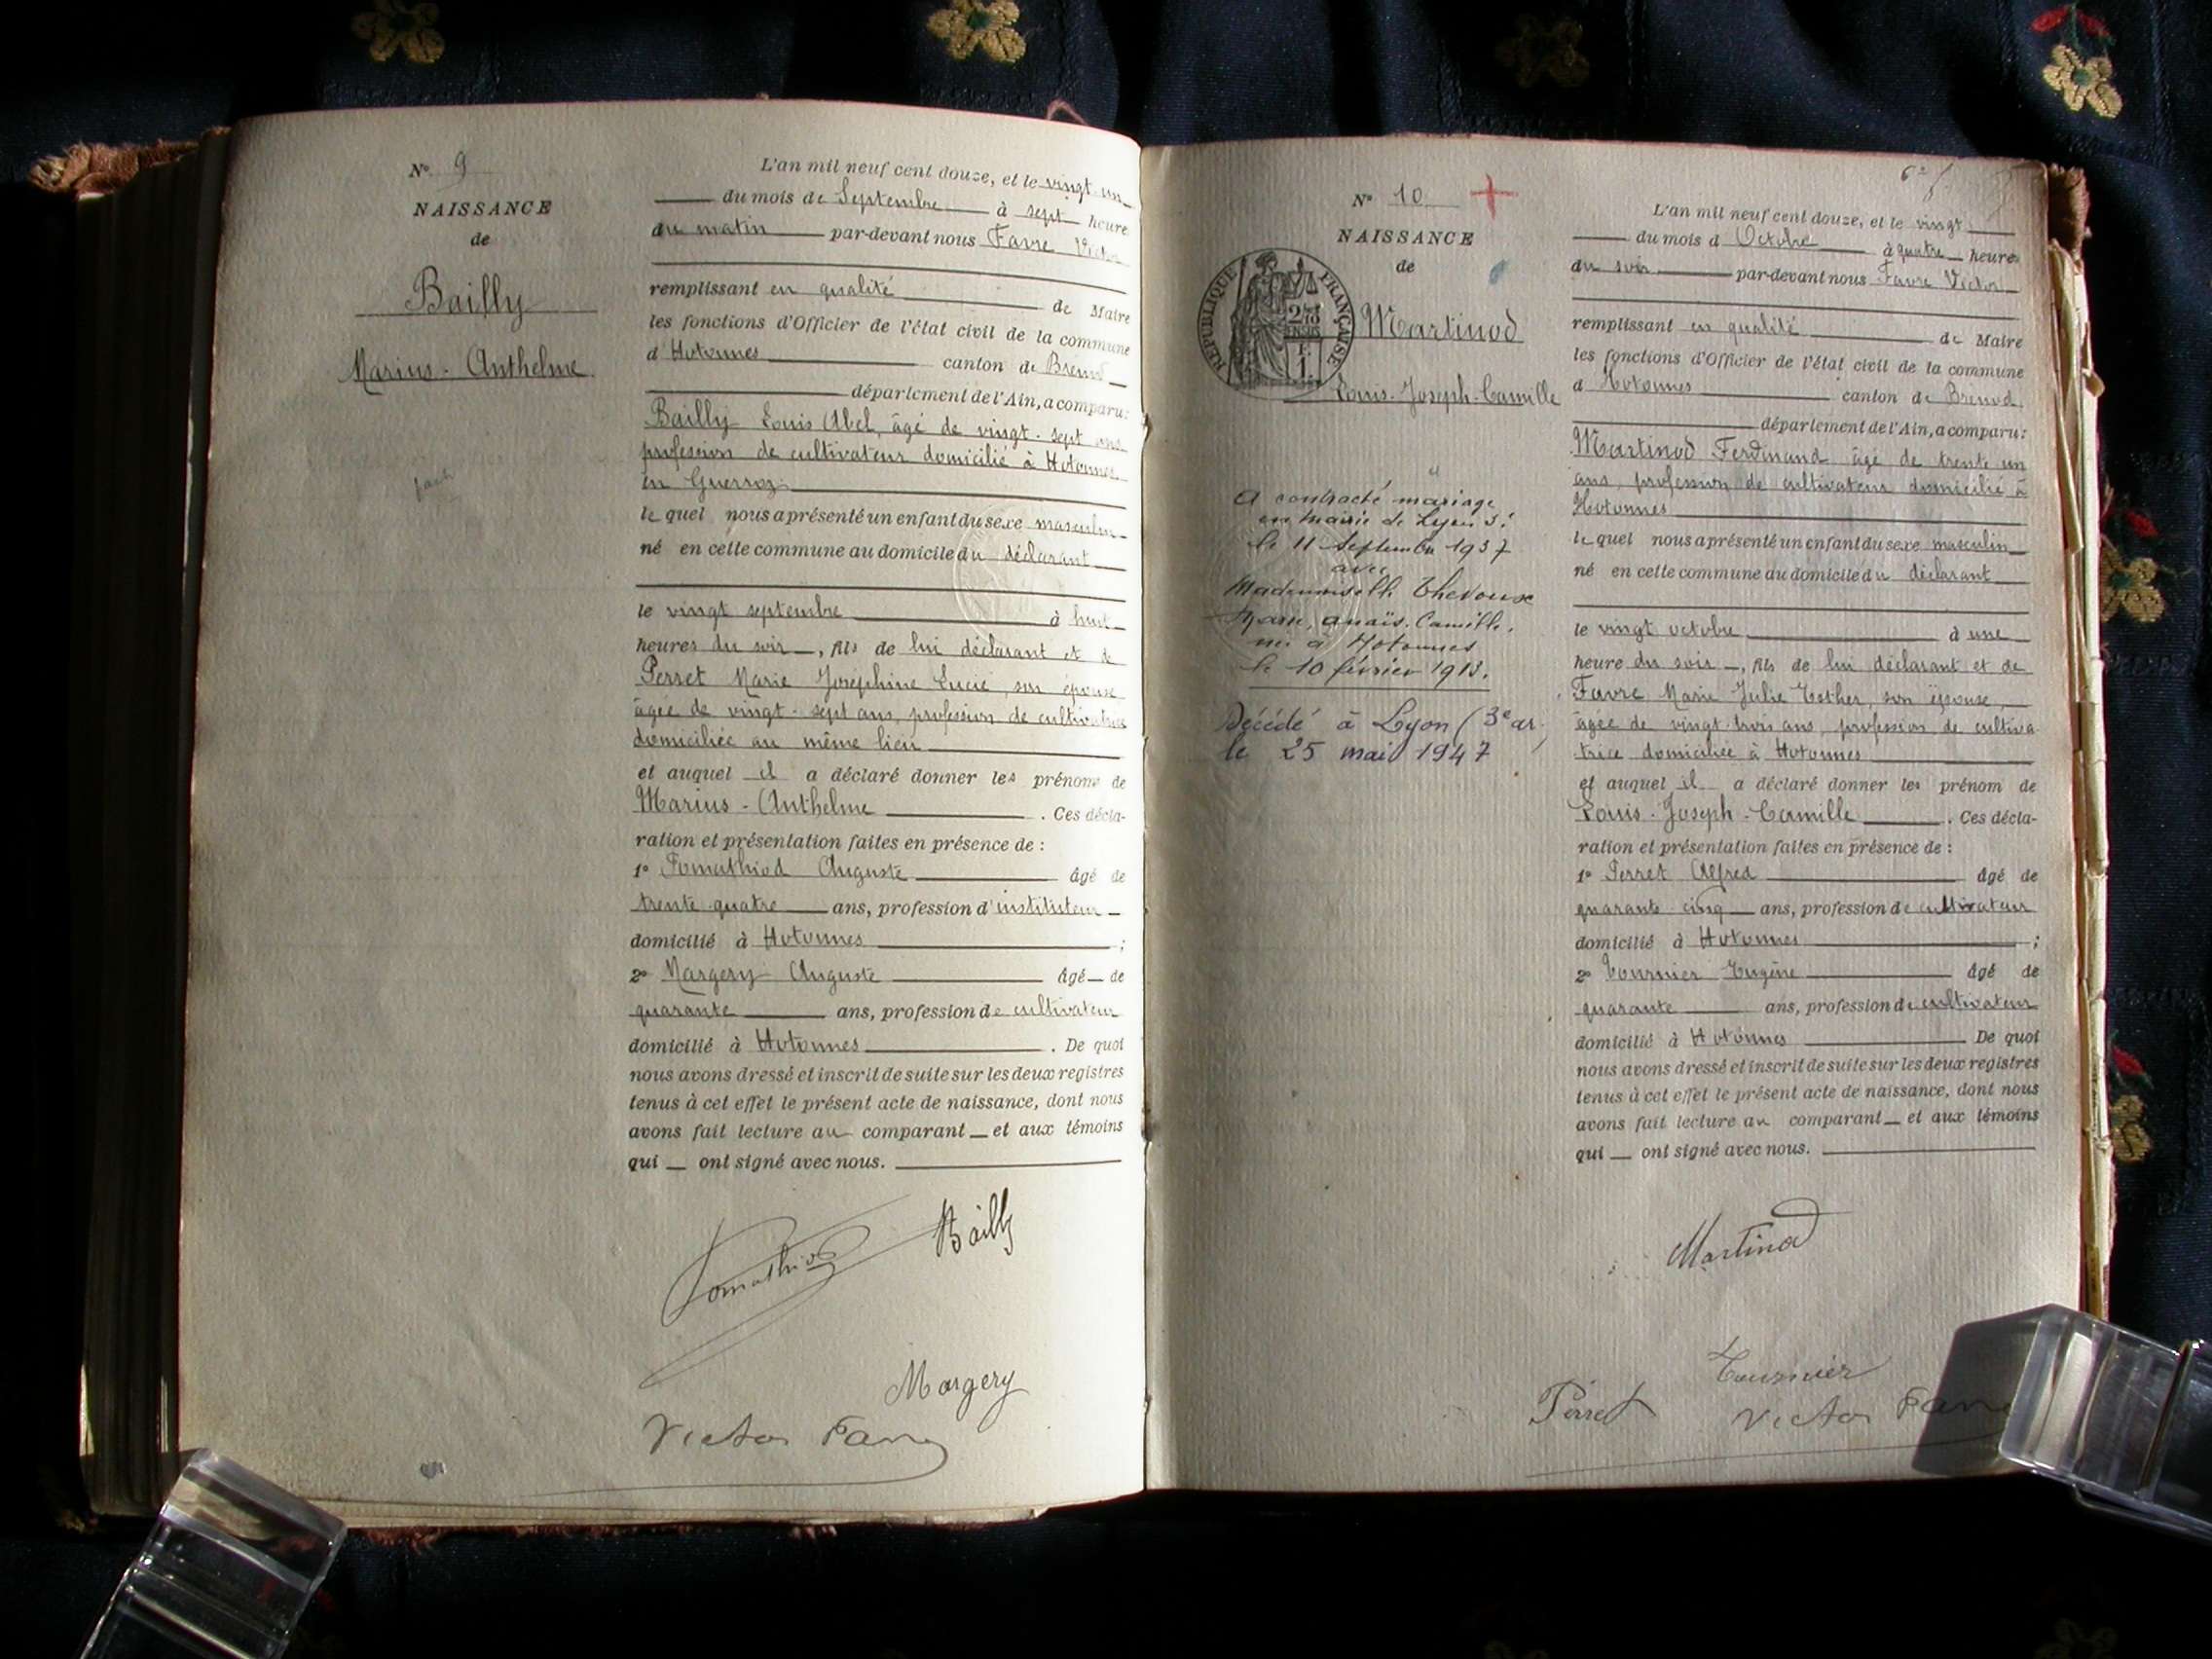 N° 9
NAISSANCE
de
Bailly
Marius-Anthelme
L'an mil neuf cent douze, et le vingt-un
du mois de Septembre à sept heure
du matin par-devant nous Favre Victor
remplissant en qualité de Maire
les fonctions d'Officier de l'état civil de la commune
d'Hotonnes canton de Brénod
département de l'Ain, a comparu:
Bailly Louis Abel, âgé de vingt-sept ans
profession de cultivateur domicilié à Hotonnes
en Guerroz
lequel nous a présenté un enfant du sexe masculin
né en cette commune au domicile du déclarant
le vingt septembre à huit
heures du soir, fils de lui déclarant et de
Perret Marie Joséphine Lucie, son épouse
âgée de vingt-sept ans, profession de cultivatrice
domiciliée au même lieu
et auquel il a déclaré donner les prénoms de
Marius-Anthelme. Ces décla-
ration et présentation faites en présence de :
1° Pomathiod Auguste âgé de
trente-quatre ans, profession d'instituteur
domicilié à Hotonnes ;
2° Margery Auguste âgé de
quarante ans, profession de cultivateur
domicilié à Hotonnes. De quoi
nous avons dressé et inscrit de suite sur les deux registres
tenus à cet effet le présent acte de naissance, dont nous
avons fait lecture au comparant et aux témoins
qui ont signé avec nous.
Pomathiod Bailly
Margery
Victor Favre
N° 10
NAISSANCE
de
RÉPUBLIQUE FRANÇAISE
Martinod
Louis-Joseph-Camille
A contracté mariage
en mairie de Lyon 3e
le 11 Septembre 1937
avec
Mademoiselle Thevoux
Marie, Anaïs, Camille,
née à Hotonnes
le 10 février 1913.
Décédé à Lyon (3e ar.)
le 25 mai 1947
L'an mil neuf cent douze, et le vingt
du mois d'Octobre à quatre heures
du soir par-devant nous Favre Victor
remplissant en qualité de Maire
les fonctions d'Officier de l'état civil de la commune
d'Hotonnes canton de Brénod
département de l'Ain, a comparu:
Martinod Ferdinand âgé de trente un
ans, profession de cultivateur domicilié à
Hotonnes
lequel nous a présenté un enfant du sexe masculin
né en cette commune au domicile du déclarant
le vingt octobre à une
heure du soir, fils de lui déclarant et de
Favre Marie Julie Esther, son épouse,
âgée de vingt-trois ans, profession de cultiva
trice domiciliée à Hotonnes
et auquel il a déclaré donner les prénom de
Louis-Joseph-Camille. Ces décla-
ration et présentation faites en présence de :
1° Perret Alfred âgé de
quarante cinq ans, profession de cultivateur
domicilié à Hotonnes ;
2° Tournier Eugène âgé de
quarante ans, profession de cultivateur
domicilié à Hotonnes De quoi
nous avons dressé et inscrit de suite sur les deux registres
tenus à cet effet le présent acte de naissance, dont nous
avons fait lecture au comparant et aux témoins
qui ont signé avec nous.
Martinod
Tournier
Perret Victor Favre